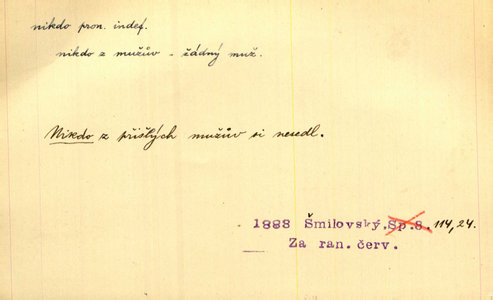 nikdo pron. indef.
nikdo z mužův - žádný muž.
Nikdo z přišlých mužův si nesedl.
1888 Šmilovský. Sp.8. 114,24.
Za ran. červ.